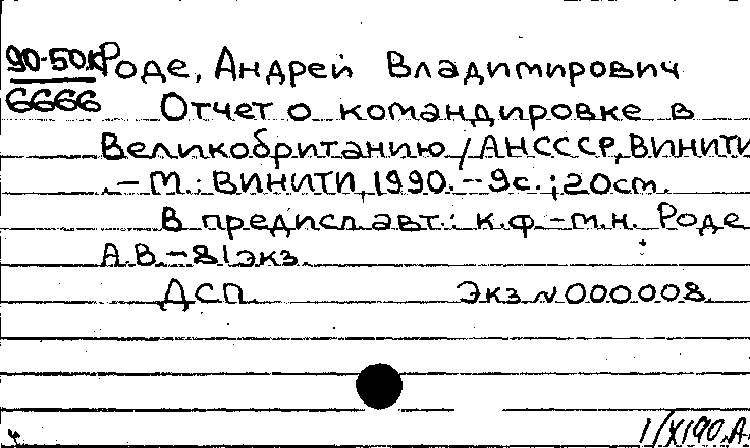 90-50к Роде, Андрей Владимирович
6666 Отчет о командировке в
Великобританию / АНСССР, ВИНИТИ
.– М.: ВИНИТИ, 1990. – 9с.; 20см.
В предисл. авт.: к.ф.-м.н. Роде
А.В. – 81экз.
ДСП. Экз N 000008.
1/X190.А.